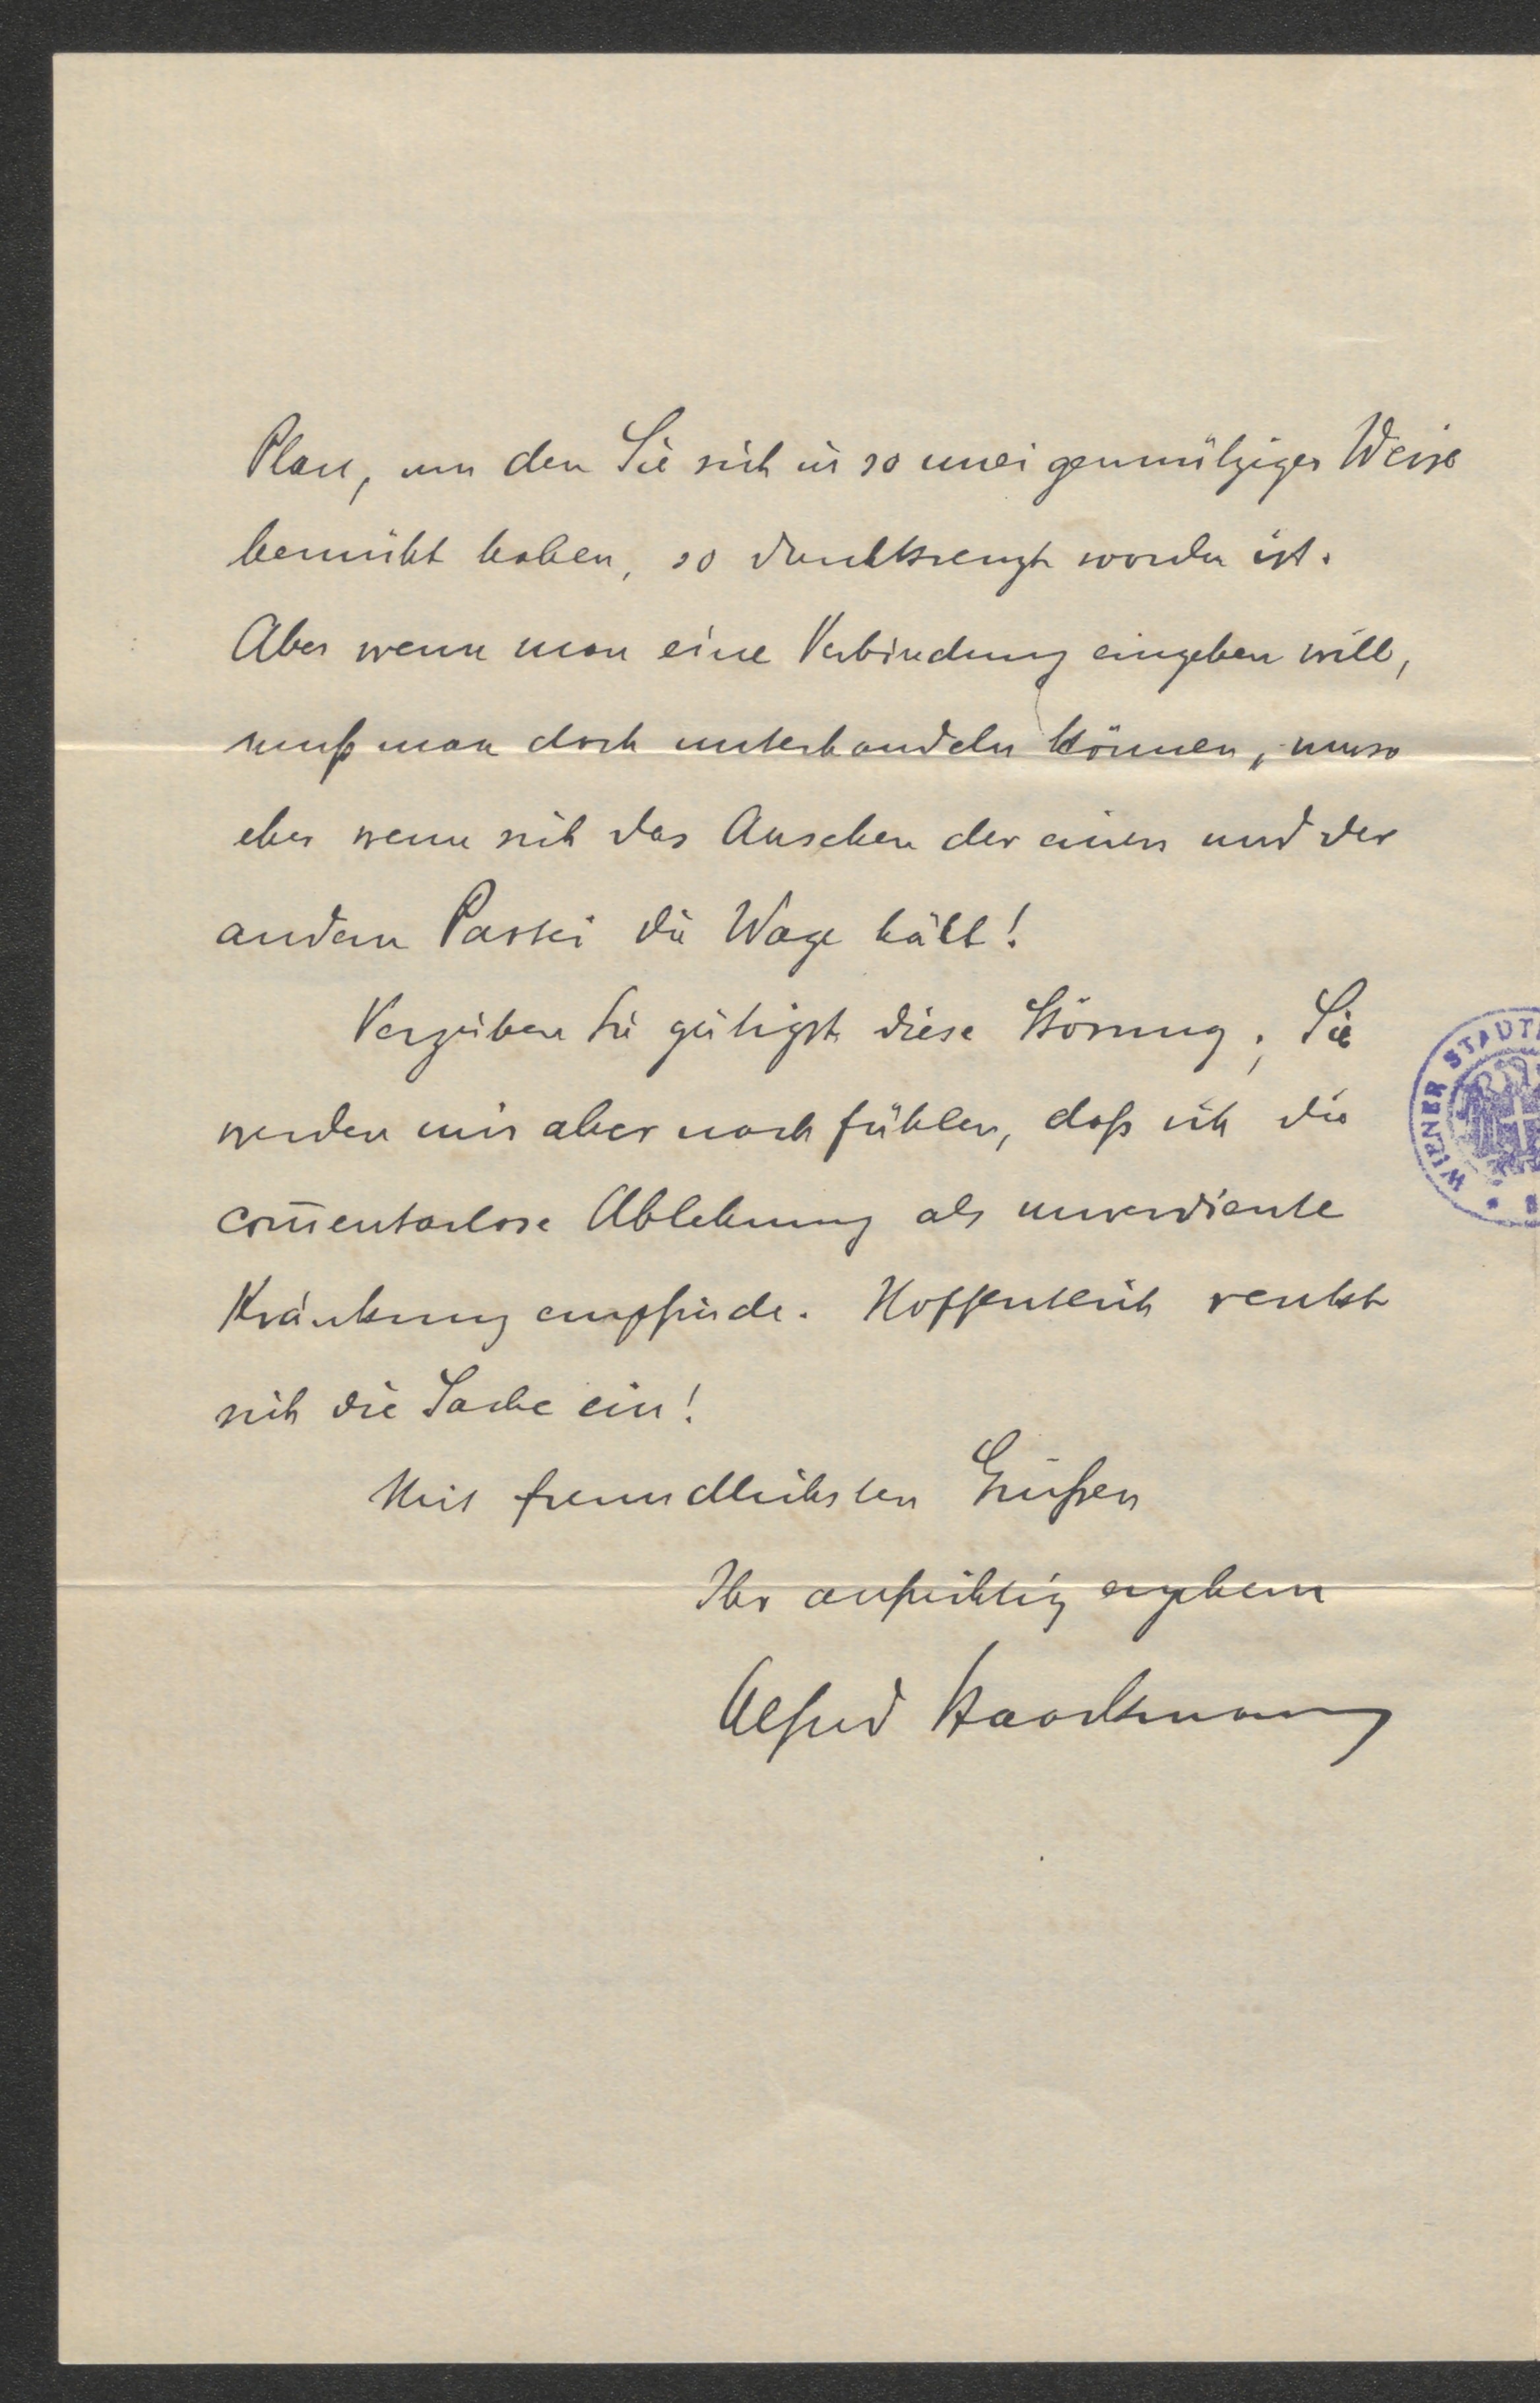 Plan, um den Sie sich in so uneigennütziger Weise
bemüht haben, so durchkreuzt worden ist.
Aber wenn man eine Verbindung eingehen will,
muß man doch unterhandeln können, umso
eher wenn sich das Ansehen der einen und der
andern Partei die Wage hält!
Verzeihen Sie gütigst diese Störung; Sie
werden mir aber nachfühlen, daß ich die
com̄entarlose Ablehnung als unverdiente
Kränkung empfinde. Hoffentlich renkt
sich die Sache ein!
Mit freundlichsten Grüßen
Ihr aufrichtig ergebener
Alfred
WIENER STADT